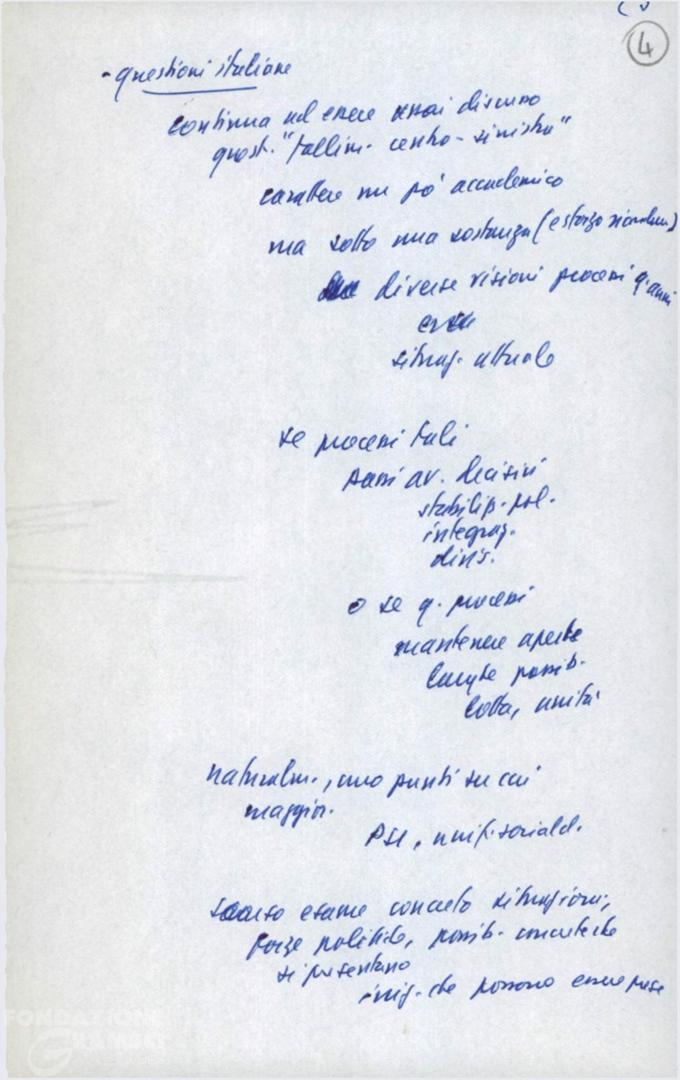 4
- questioni italiane
continua ad essere assai discusso
quest. "fallim. centro-sinistra"
carattere un po' accademico
ma sotto una sostanza (e sforzo
diverse visioni processi q. anni
e
situaz. attuale
se processi tali
passi av. decisivi
stabiliz. pol.
integraz.
divis.
o se q. processi
mantenere aperte
lunghe possib.
lotta, unità
naturalm., uno punti su cui
maggior.
PSI, unif. sociald.
scarso esame concreto situazioni,
forze politiche, possib. concrete che
si presentano
iniz. che possono essere prese
FONDAZIONE
GRAMSCI